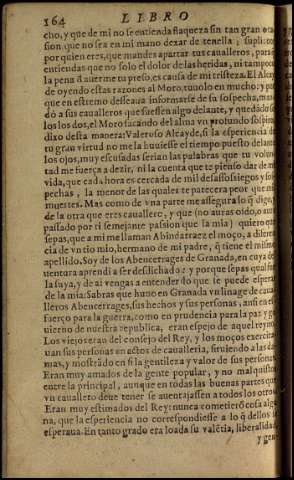 164 LIBRO
cho, y que de mi no se entienda flaqueza sin tan gran oca
sion que no sea en mi mano dexar de tenella; suplicote
por quien eres, que mandes apartar tus caualleros, para q
entiendas que no solo el dolor de las heridas, ni tampoco
la pena d auerme tu preso, es causa de mi tristeza. El Alcay
de oyendo estas razones al Moro, tuuolo en mucho: y por
que en estremo desseaua informarse de su sospecha, man
dò a sus caualleros que fuessen algo delante, y quedado so
los los dos, el Moro sacando del alma vn profundo sospiro
dixo desta manera: Valeroso Alcayde, si la esperiencia de
tu gran virtud no me la huuiesse el tiempo puesto delante
los ojos, muy escusadas serian las palabras que tu volun
tad me fuerça a dezir, ni la cuenta que te pienso dar de mi
vida, que cada hora es cercada de mil desassossiegos y sos
pechas, la menor de las quales te parecera peor que mil
muertes. Mas como de vna parte me assegura lo q digo, y
de la otra que eres cauallero, y que (no auras oido, o aura
passado por ti semejante passion que la mia) quiero que
sepas, que a mi me llaman Abindarraez el moço, a diferen
cia de vn tio mio, hermano de mi padre, q tiene el mismo
apellido. Soy de los Abencerrages de Granada, en cuya de
uentura aprendi a ser desdichado: y porque sepas qual fue
la suya, y de ai vengas a entender lo que se puede esperar
de la mia: Sabras que huuo en Granada vn linage de caua
lleros Abencerrages, sus hechos y sus personas, ansi en es
fuerço para la guerra, como en prudencia para la paz y go
uierno de nuestra republica, eran espejo de aquel reyno.
Los viejos eran del consejo del Rey, y los moços exercita
uan sus personas en actos de caualleria, siruiendo a las da
mas, y mostrado en si la gentileza y valor de sus personas.
Eran muy amados de la gente popular, y no malquistos
entre la principal, aunque en todas las buenas partes que
vn cauallero deue tener se auentajassen a todos los otros.
Eran muy estimados del Rey: nunca cometierō cosa algu
na, que la esperiencia no correspondiesse a lo q dellos se
esperaua. En tanto grado era loada su valētia, liberalidad
y gen